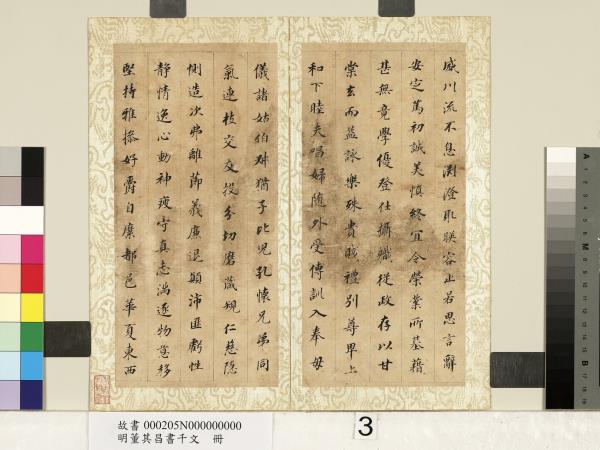 盛川流不息渊澄取暎容止若思言辭
安定篤初誠美慎終宜令榮業所基藉
甚無竟學優登仕攝職從政存以甘
棠去而益詠樂殊貴賤禮別尊卑上
和下睦夫唱婦隨外受傅訓入奉母
儀諸姑伯叔猶子比兒孔懷兄弟同
氣連枝交友投分切磨箴規仁慈隱
惻造次弗離節義廉退顛沛匪虧性
静情逸心動神疲守真志滿逐物意移
堅持雅操好爵自縻都邑華夏東西
故書 000205N000000000
明董其昌書千文 冊
3